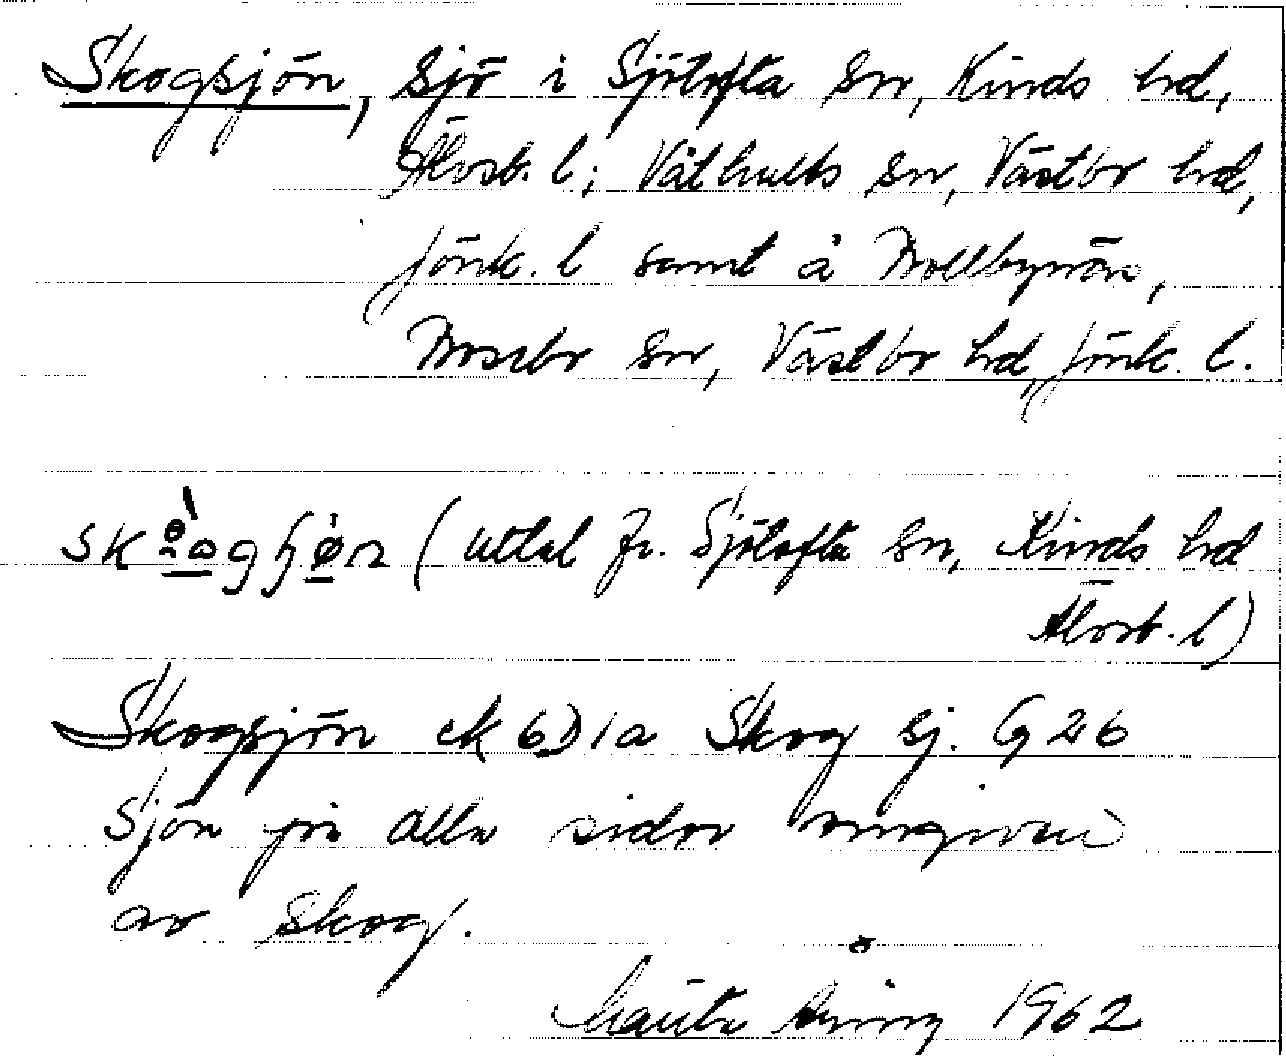 Skogsjön, sjö i Sjötofta sn, Kinds hd,
Älvsb. l; Våthults sn, Västbo hd,
Jönk. l samt å Mollbynäs,
Mosebo sn, Västbo hd, Jönk. l.
(uttal fr. Sjötofta sn, Kinds hd
Älvsb. l)
Skogsjön ek 6D1a Skog sj. G26
Sjön på alla sidor omgiven
av skog.
1962